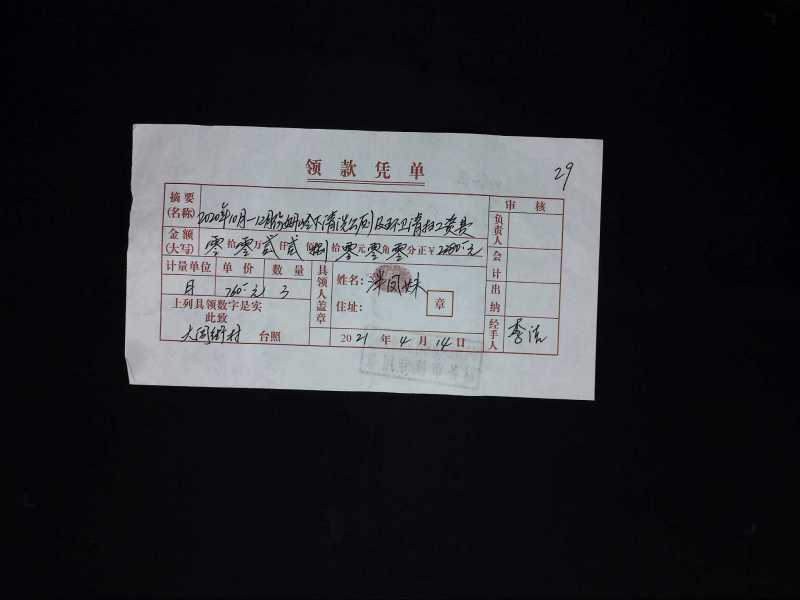 领款凭单
29
摘要
(名称)
2020年10月—12月份
清洗公厕及环卫清扫工资表
审核
负责人
金额
(大写)
零拾零万贰仟贰佰捌拾零元零角零分正¥2280.元
会计
计量单位 单价 数量
月 760.元 3
具领人盖章
姓名: 凤妹
住址:
章
出纳
上列具领数字是实
此致
台照
2021年4月14日
经手人
李洁